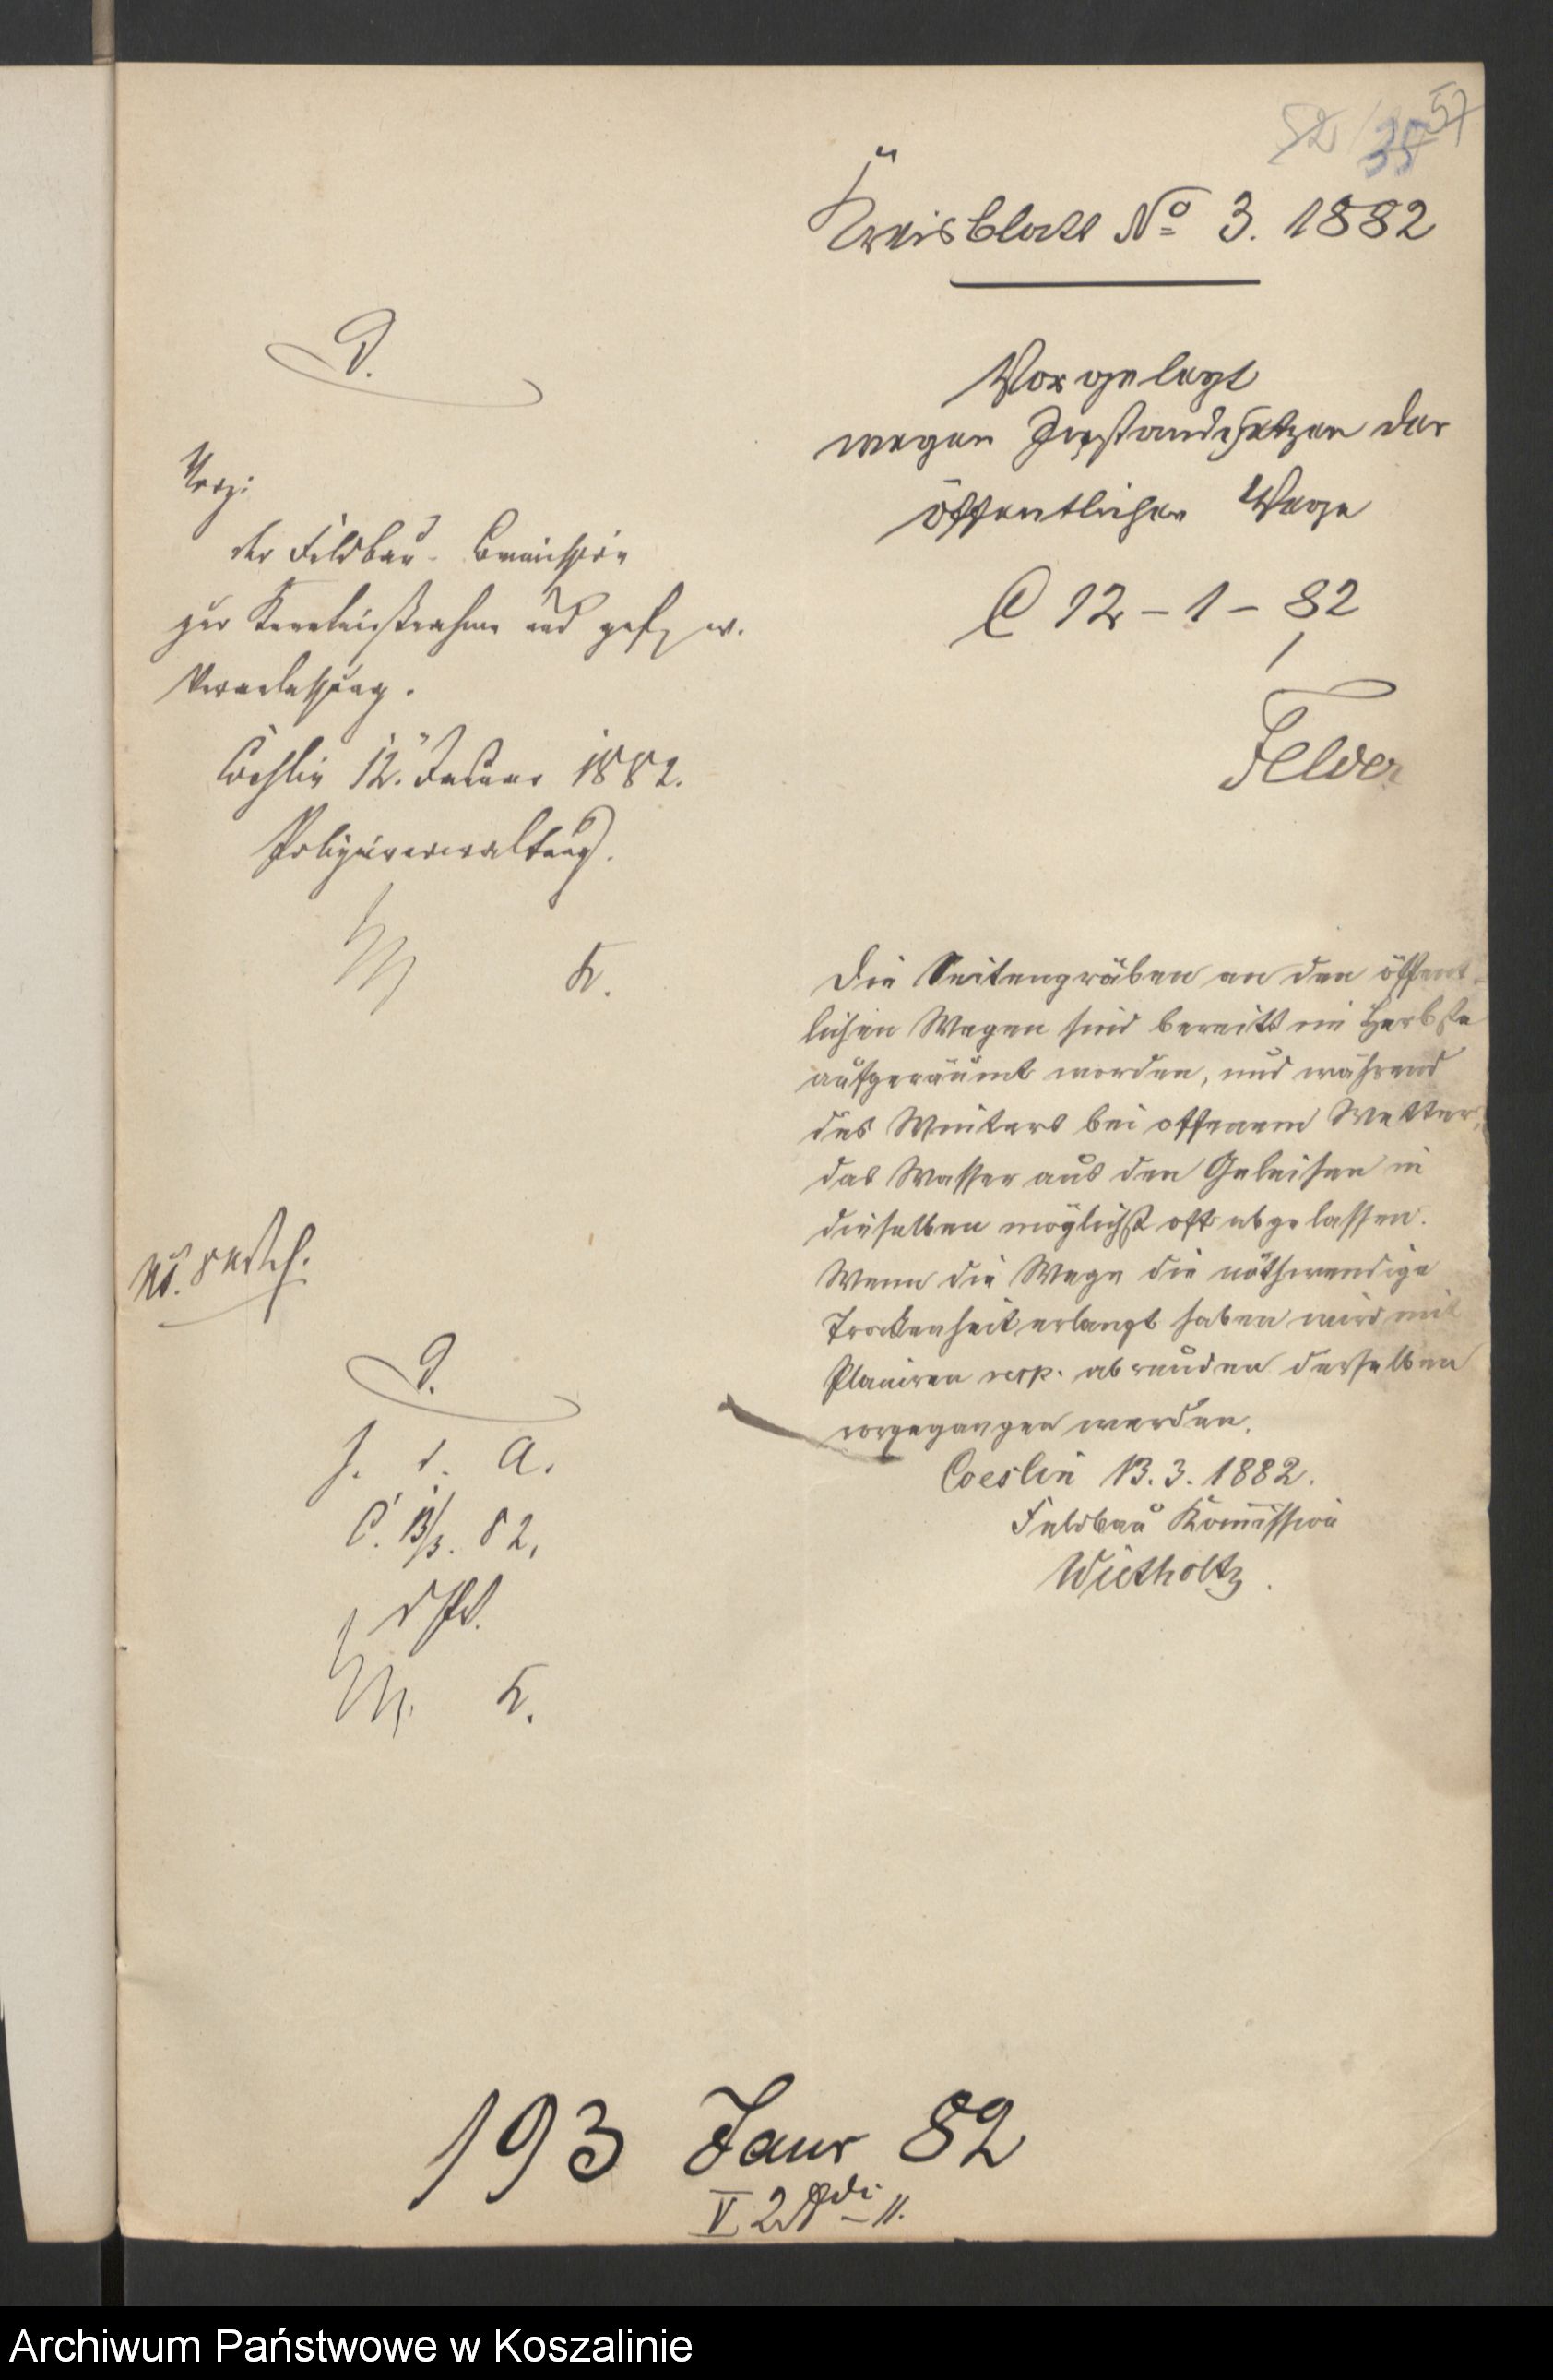 52 35 57
Kreisblatt No 3. 1882
Vorgelegt
wegen Instandsetzen der
öffentlichen Wege
C 12-1-82
Felder
V.
der Feldbau-Commission
zur Kenntnißnahme und gefl. w.
Veranlassung.
Cöslin 12. Januar 1882.
Polizeiverwaltung.
K.
Die Seitengräben an den öffent-
lichen Wegen sind bereits im Herbste
aufgeräumt worden, und während
des Winters bei offenem Wetter,
das Wasser aus den Geleisen in
dieselben möglichst oft abgelassen.
Wenn die Wege die nöthwendige
Trockenheit erlangt haben wird mit
Planiren resp. abrunden derselben
vorgegangen werden.
Coeslin 13.3.1882.
Feldbau Kommission
Wietholtz.
V.
z. d. A.
C. 13/3. 82.
K.
193 Janr 82
V 2
Archiwum Państwowe w Koszalinie